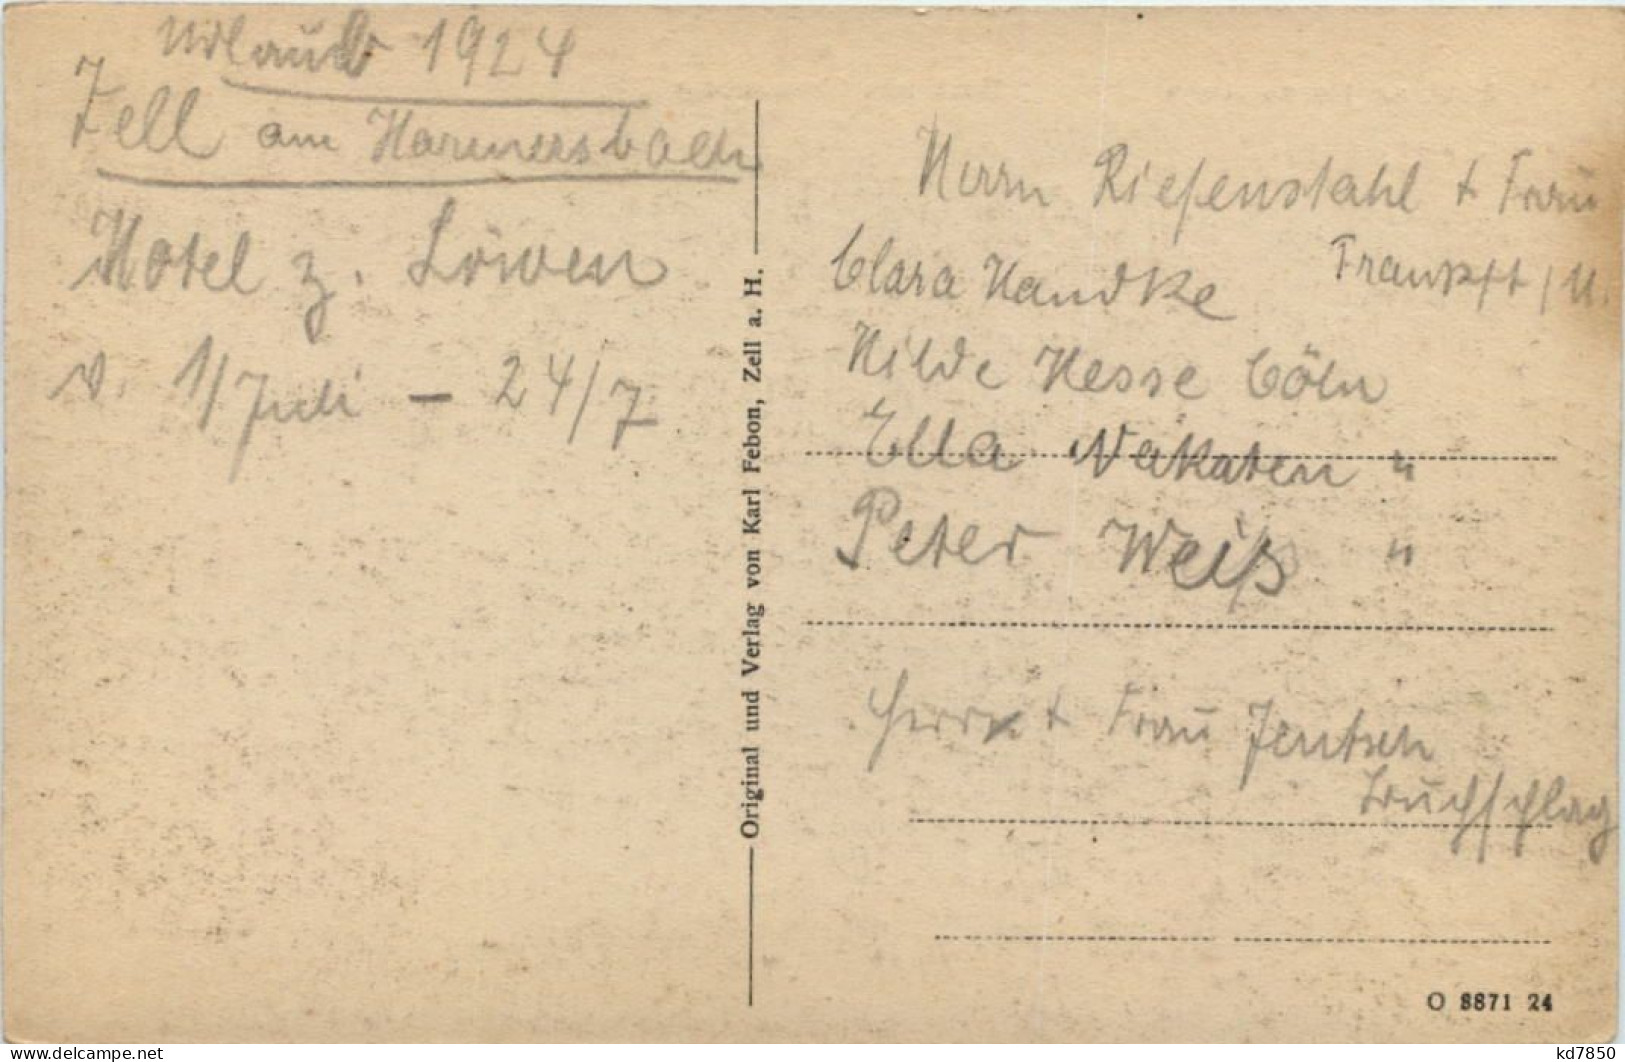 Urlaub 1924
Zell am Harmersbach
Hotel z. Löwen
v. 1/Juli – 24/7
Original und Verlag von Karl Febon, Zell a. H.
Herrn Riefenstahl + Frau
Frankft / M.
Clara Handke
Hilde Hesse Cöln
Ella Nekaten "
Peter Weiß "
Herrn + Frau Jentsch
Buchschlag
O 8871 24
kd7850